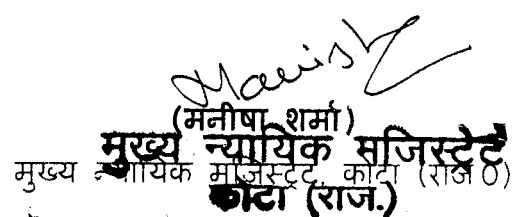 Manish
(मनीषा शर्मा)
मुख्य न्यायिक मजिस्ट्रेट
मुख्य न्यायिक मजिस्ट्रेट, कोटा (राज0)
कोटा (राज.)